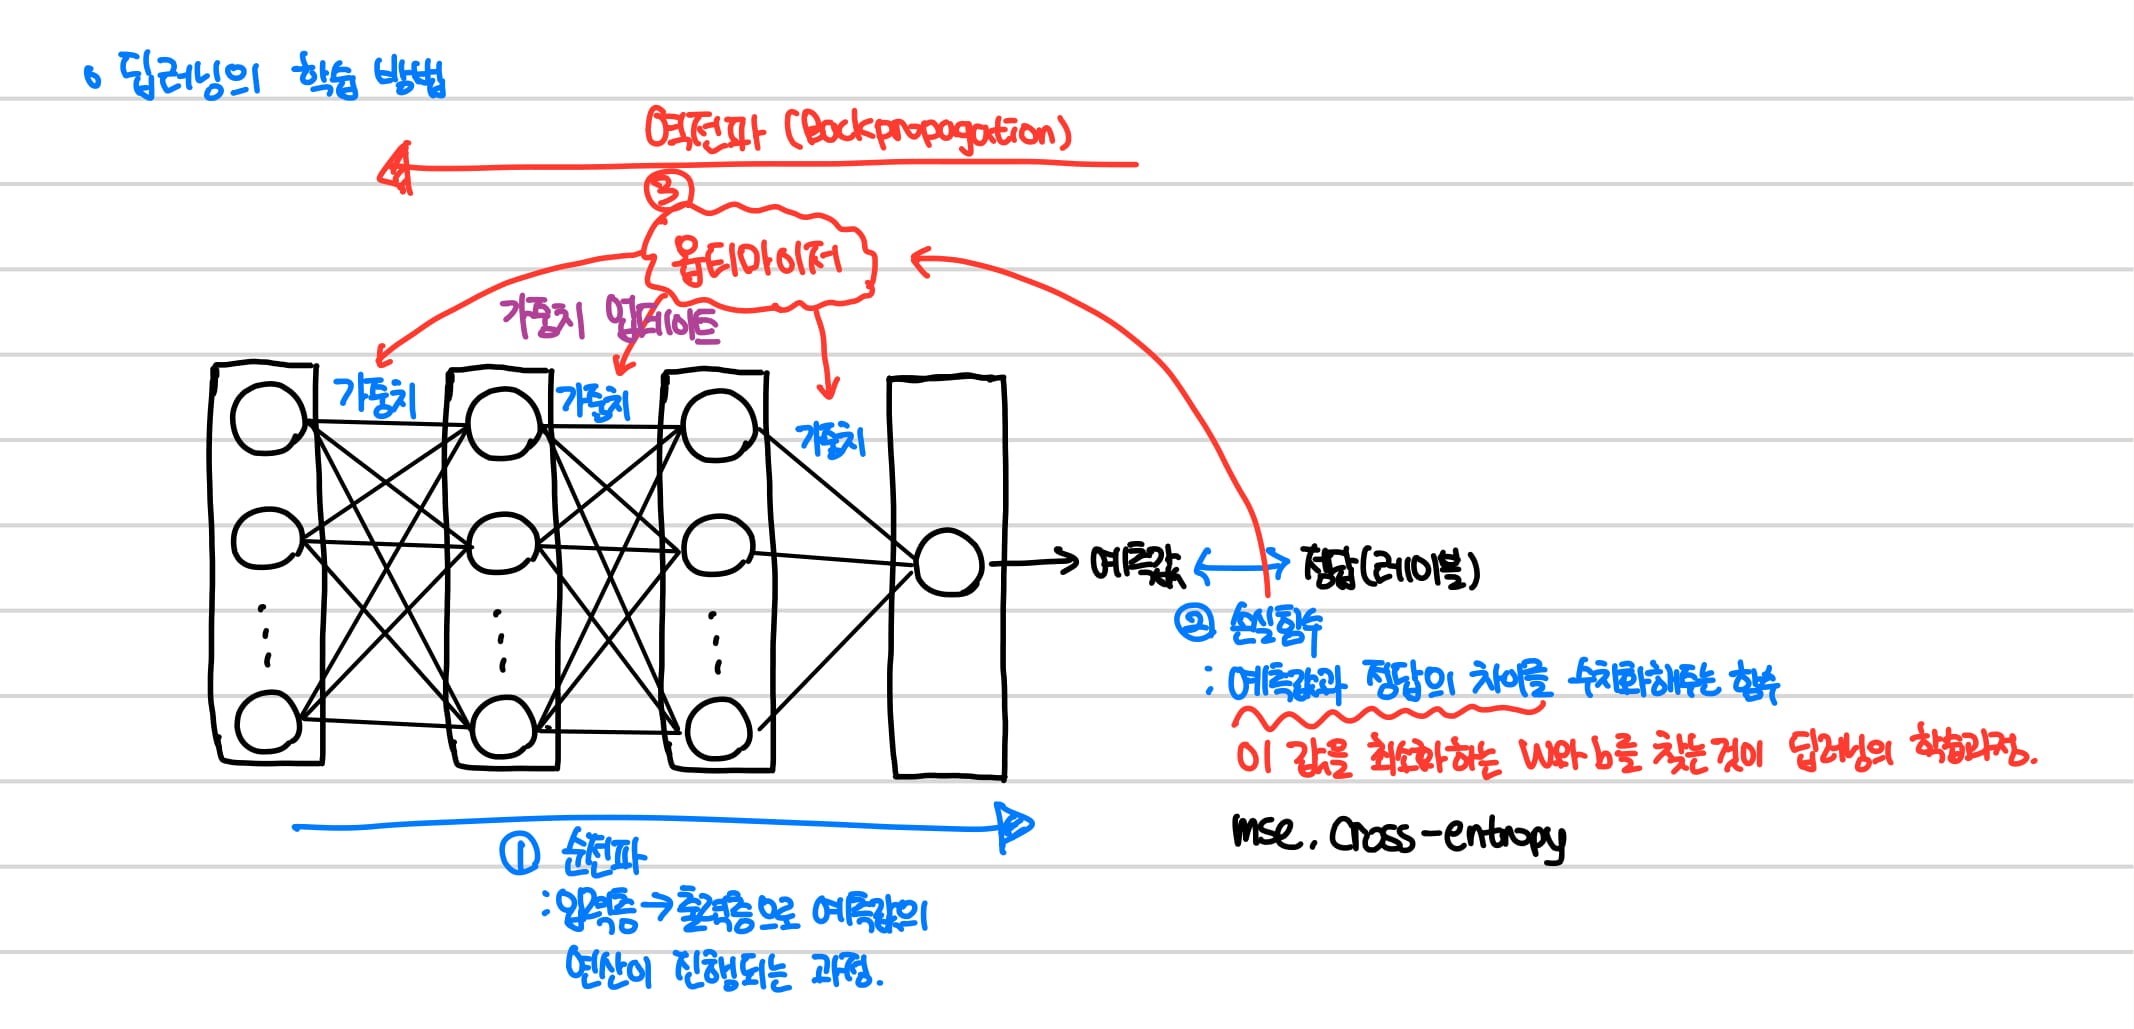 딥러닝의 학습 방법
역전파 (Backpropagation)
③
옵티마이저
가중치 업데이트
가중치
가중치
가중치
예측값 ↔ 정답(레이블)
② 손실함수
: 예측값과 정답의 차이를 수치화해주는 함수
이 값을 최소화하는 W와 b를 찾는것이 딥러닝의 학습과정.
mse. Cross-entropy
① 순전파
: 입력층 → 출력층으로 예측값의
연산이 진행되는 과정.